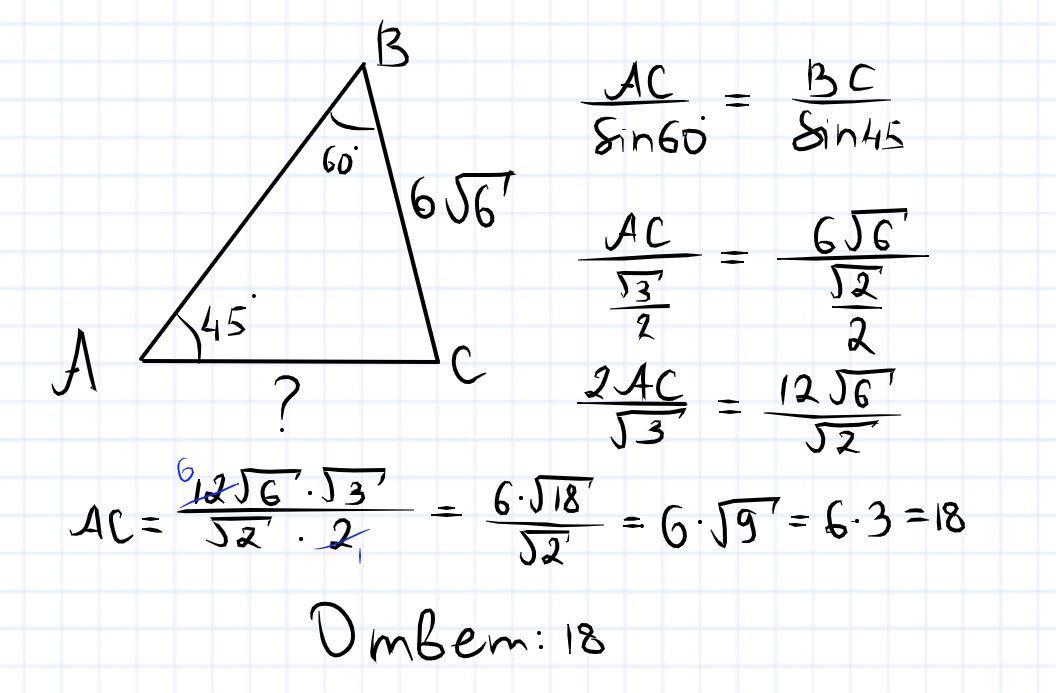 B
60°
6√6
45°
A
C
?
AC/sin60° = BC/sin45
AC/(√3/2) = 6√6/(√2/2)
2AC/√3 = 12√6/√2
6
AC = 12√6·√3/√2·2 = 6·√18/√2 = 6·√9 = 6·3 = 18
1
Ответ: 18